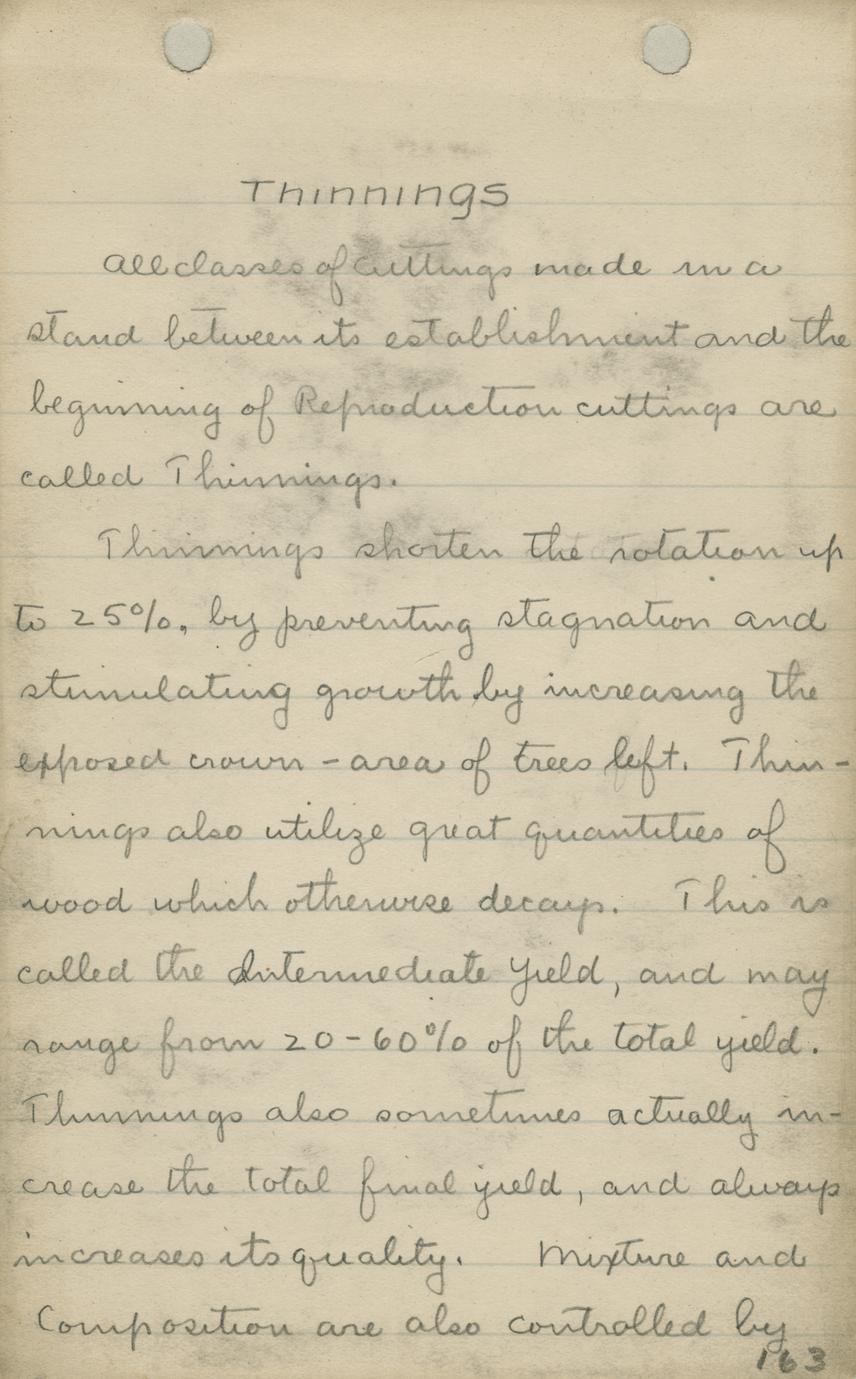 Thinnings
All classes of cuttings made in a
stand between its establishment and the
beginning of Reproduction cuttings are
called Thinnings.
Thinnings shorten the rotation up
to 25%, by preventing stagnation and
stimulating growth by increasing the
exposed crown-area of trees left. Thin-
nings also utilize great quantities of
wood which otherwise decays. This is
called the Intermediate Yield, and may
range from 20-60% of the total yield.
Thinnings also sometimes actually in-
crease the total final yield, and always
increases its quality. Mixture and
Composition are also controlled by
163